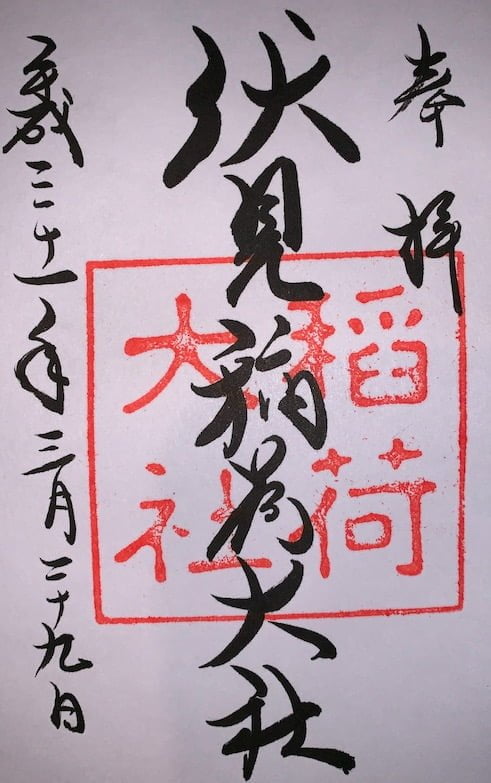 奉拝
伏見稲荷大社
平成三十一年三月二十九日
稲荷
大社